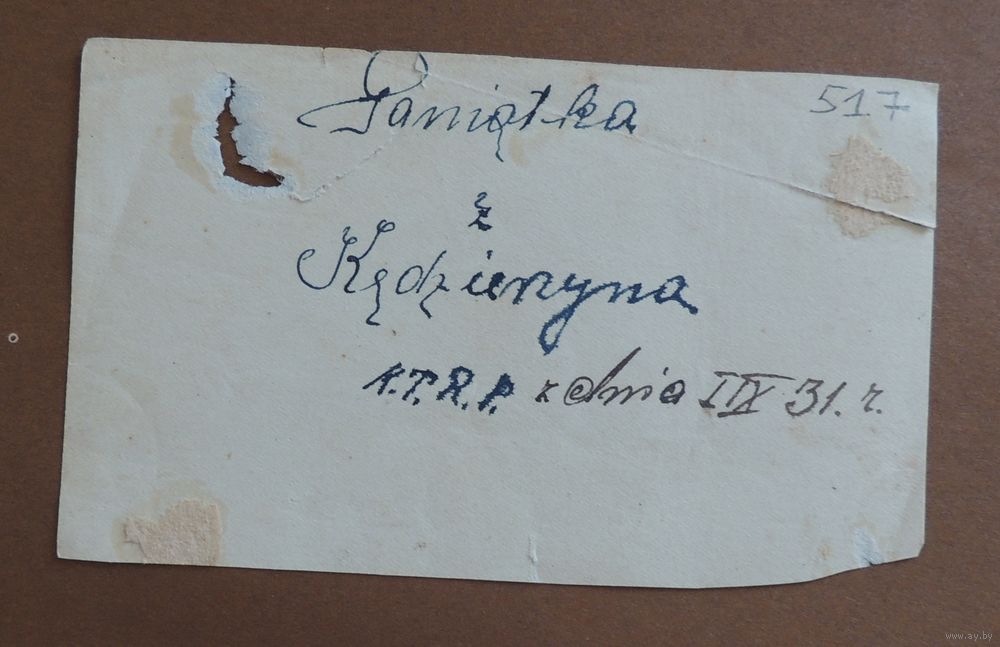 517
Pamiątka
z
Kędzierzyna
K.T.R.P. z dnia IIX 31. r.
www.ay.by